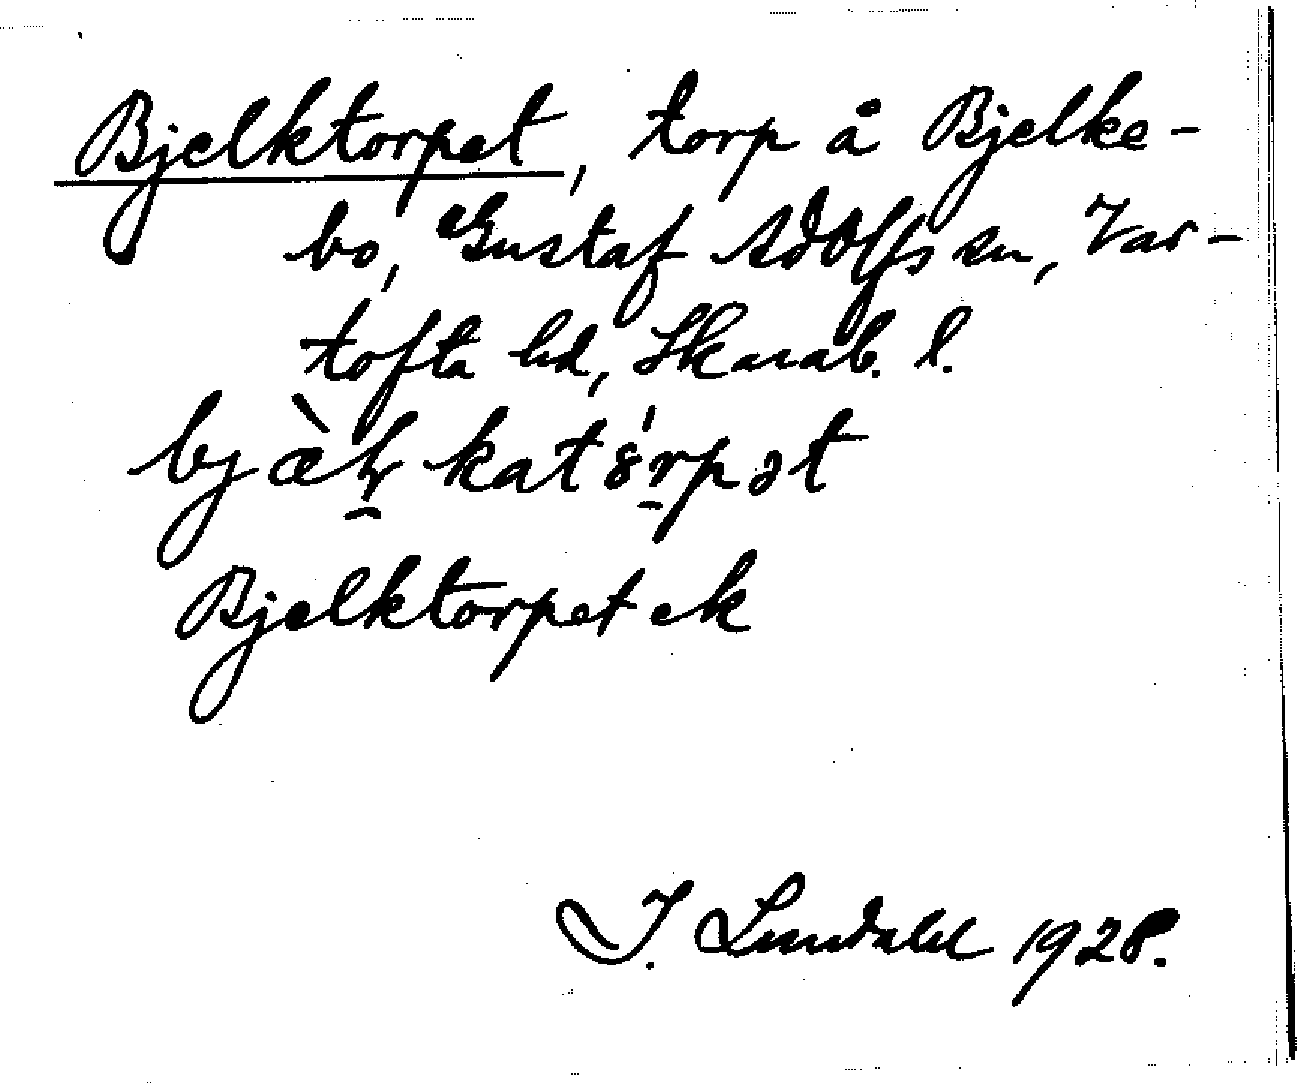 Bjelktorpet, torp å Bjelke-
bo, Gustaf Adolfs sn, Var-
tofta hd, Skarab. l.
Bjelktorpet ek
I. Lundahl 1928.